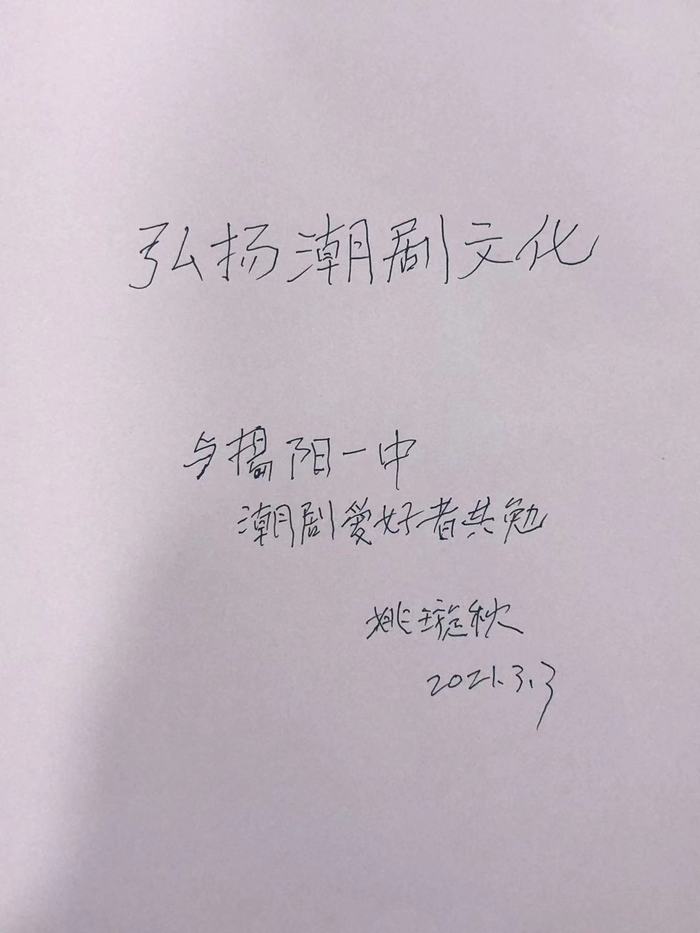 弘扬潮剧文化
与揭阳一中
潮剧爱好者共勉
姚璇秋
2021.3.3